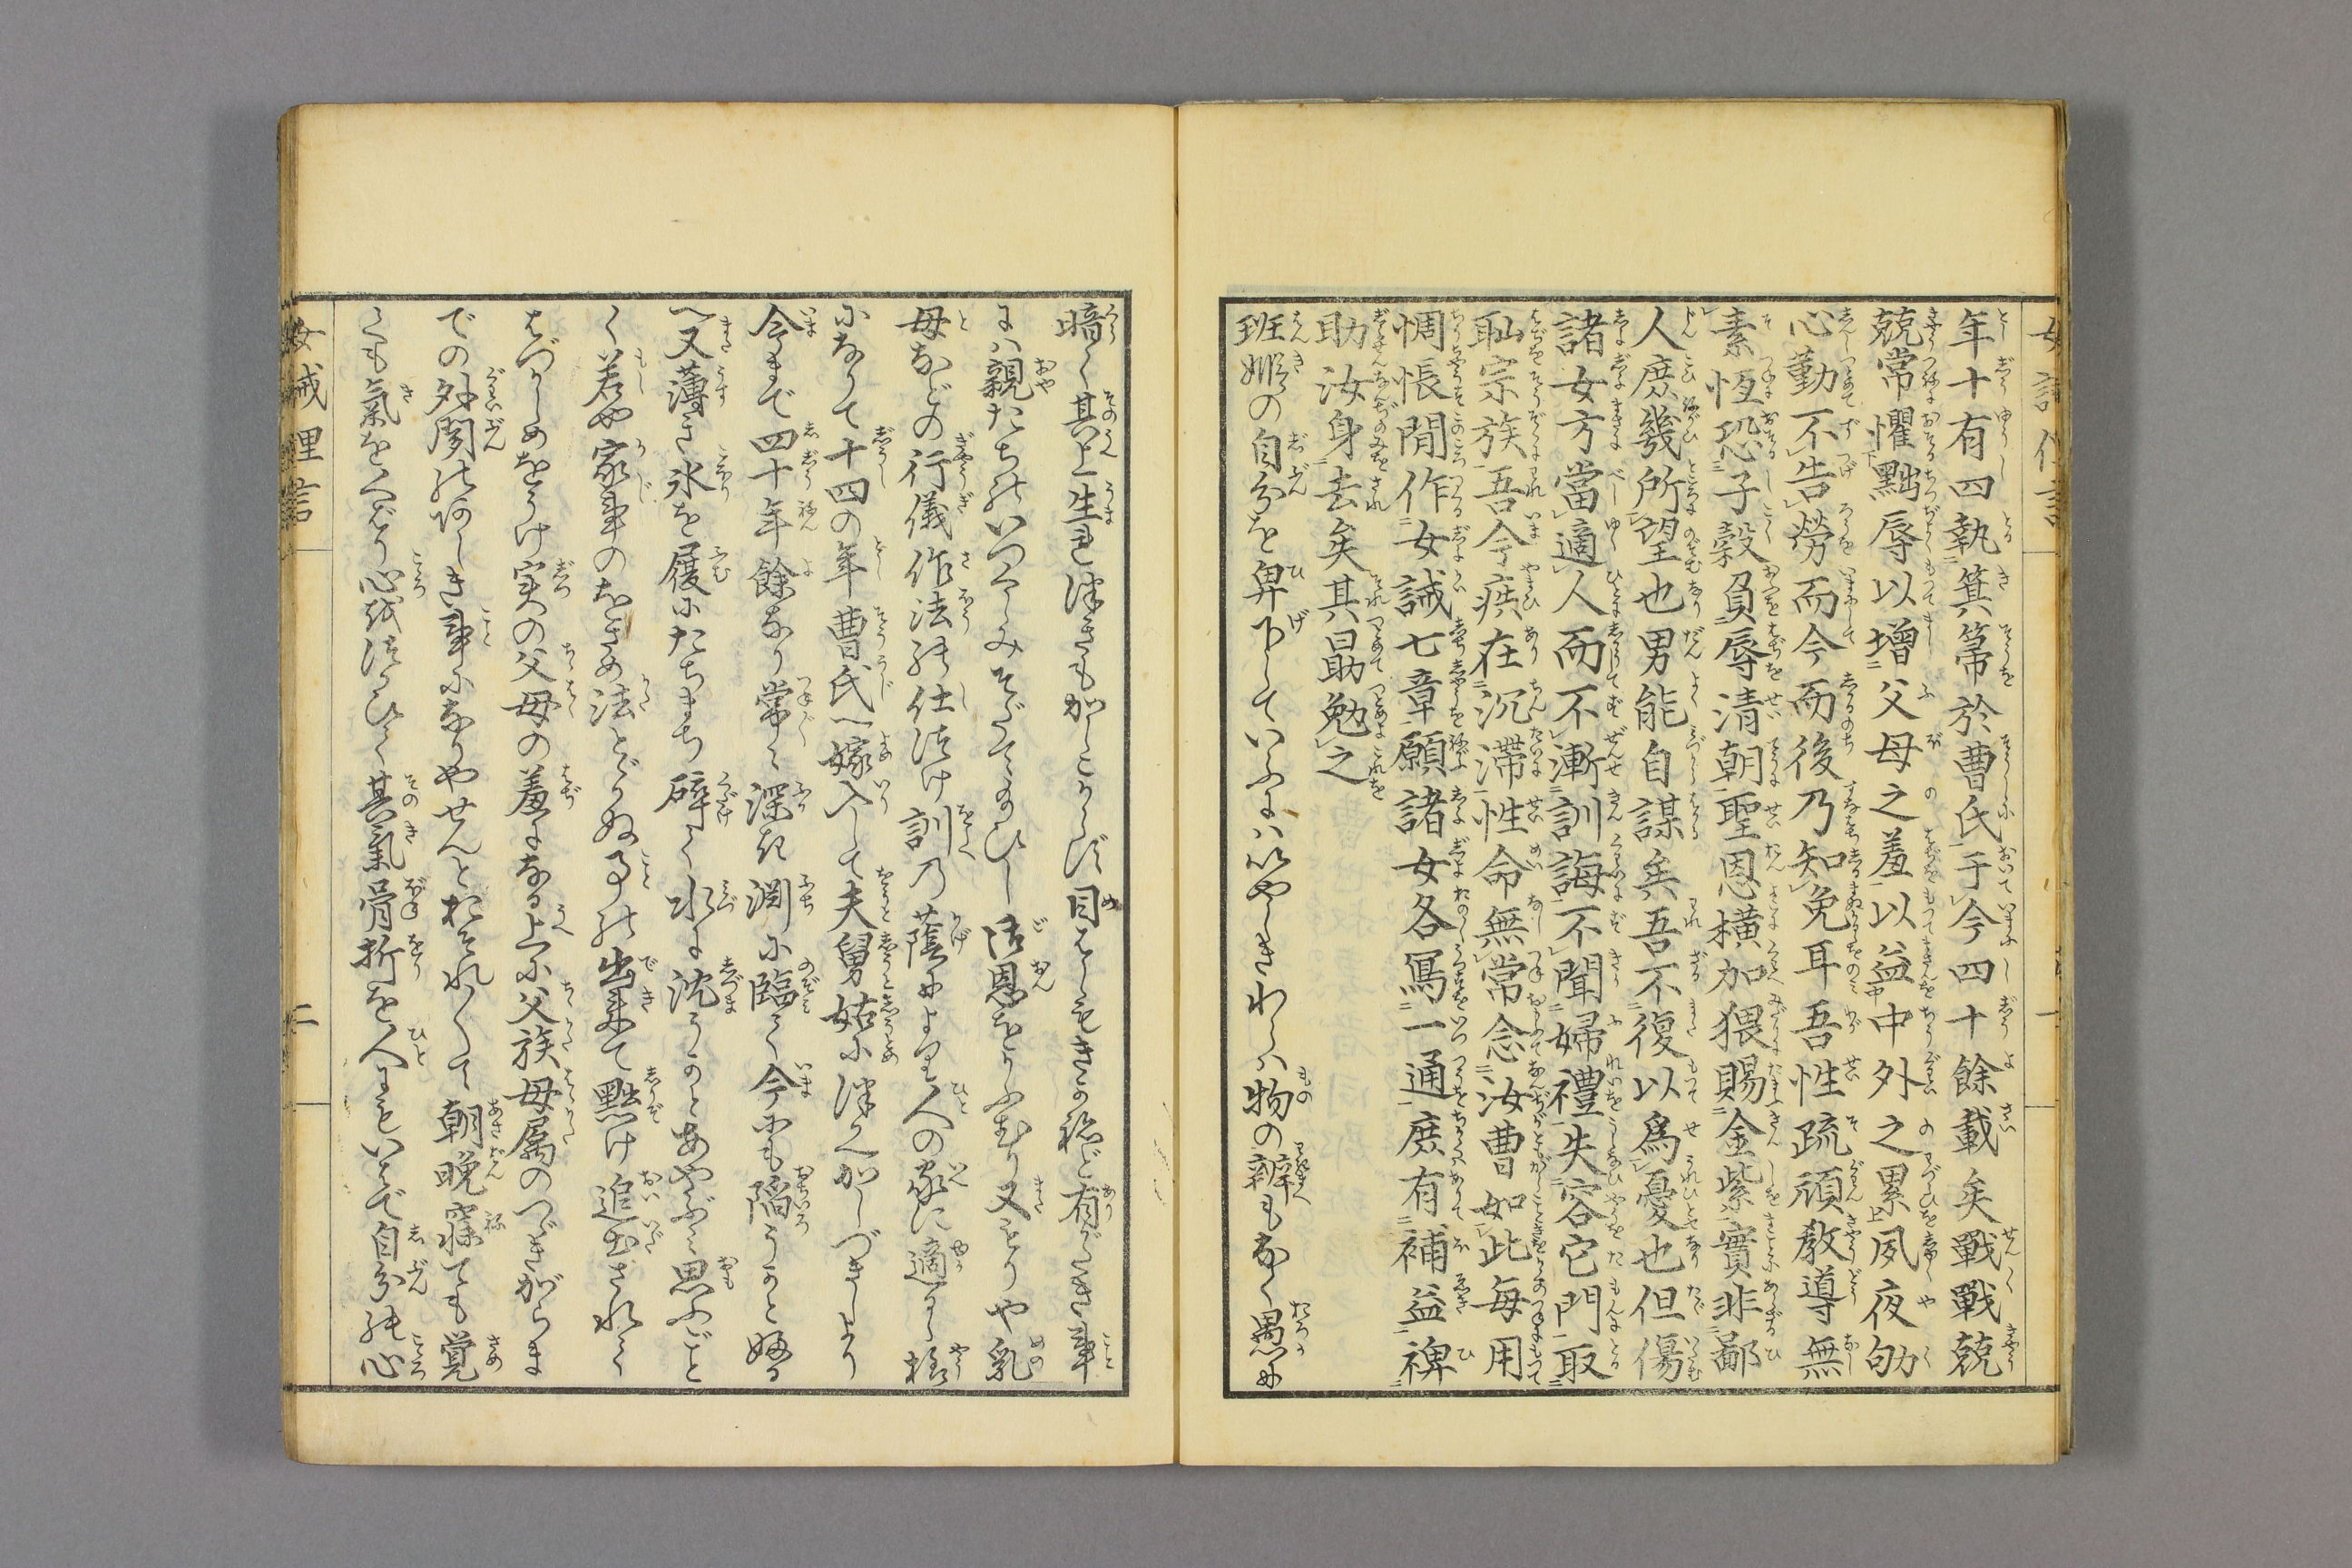 年十有四執箕箒於曹氏于今四十餘載矣戰戰兢
兢常懼黜辱以增父母之羞以益中外之累夙夜劬
心勤不告勞而今而後乃知免耳吾性疏頑教導無
素恆恐子穀負辱清朝聖恩橫加猥賜金紫實非鄙
人庶幾所望也男能自謀矣吾不復以爲憂也但傷
諸女方當適人而不漸訓誨不聞婦禮失容它門取
耻宗族吾今疾在沉滯性命無常念汝曹如此每用
惆悵閒作女誡七章願諸女各寫一通庶有補益裨
助汝身去矣其勗勉之
班姫の自分を卑下していふにハいやしきわらハ物の辨もなく愚に
暗く其上生れつきもかしこからず目はしもきかねど有がたき事
にハ親たちのいつくしみそだて給ひし御恩をかふむり又もりや乳
母などの行儀作法の仕つけ訓乃蔭により人の家に適くべき
になりて十四の年曹氏へ嫁入して夫舅姑につかへかしづきしより
今まで四十年餘なり常々深き淵に臨て今にも陥うかと怖る
へ又薄き氷を履にたちまち碎て水に沈うかとあやぶみ思ふごと
く若や家事のをさめ法とゞかぬ事の出来て黜け追出されて
はづかしめをうけ実の父母の羞になる上に父族母屬のつゞきがらま
での外聞のあしき事になりやせんとおそれ〳〵て朝晩寐ても覚
ても氣をくばり心をつかひて其氣骨折を人にもいはで自分の心
女誡俚言
二